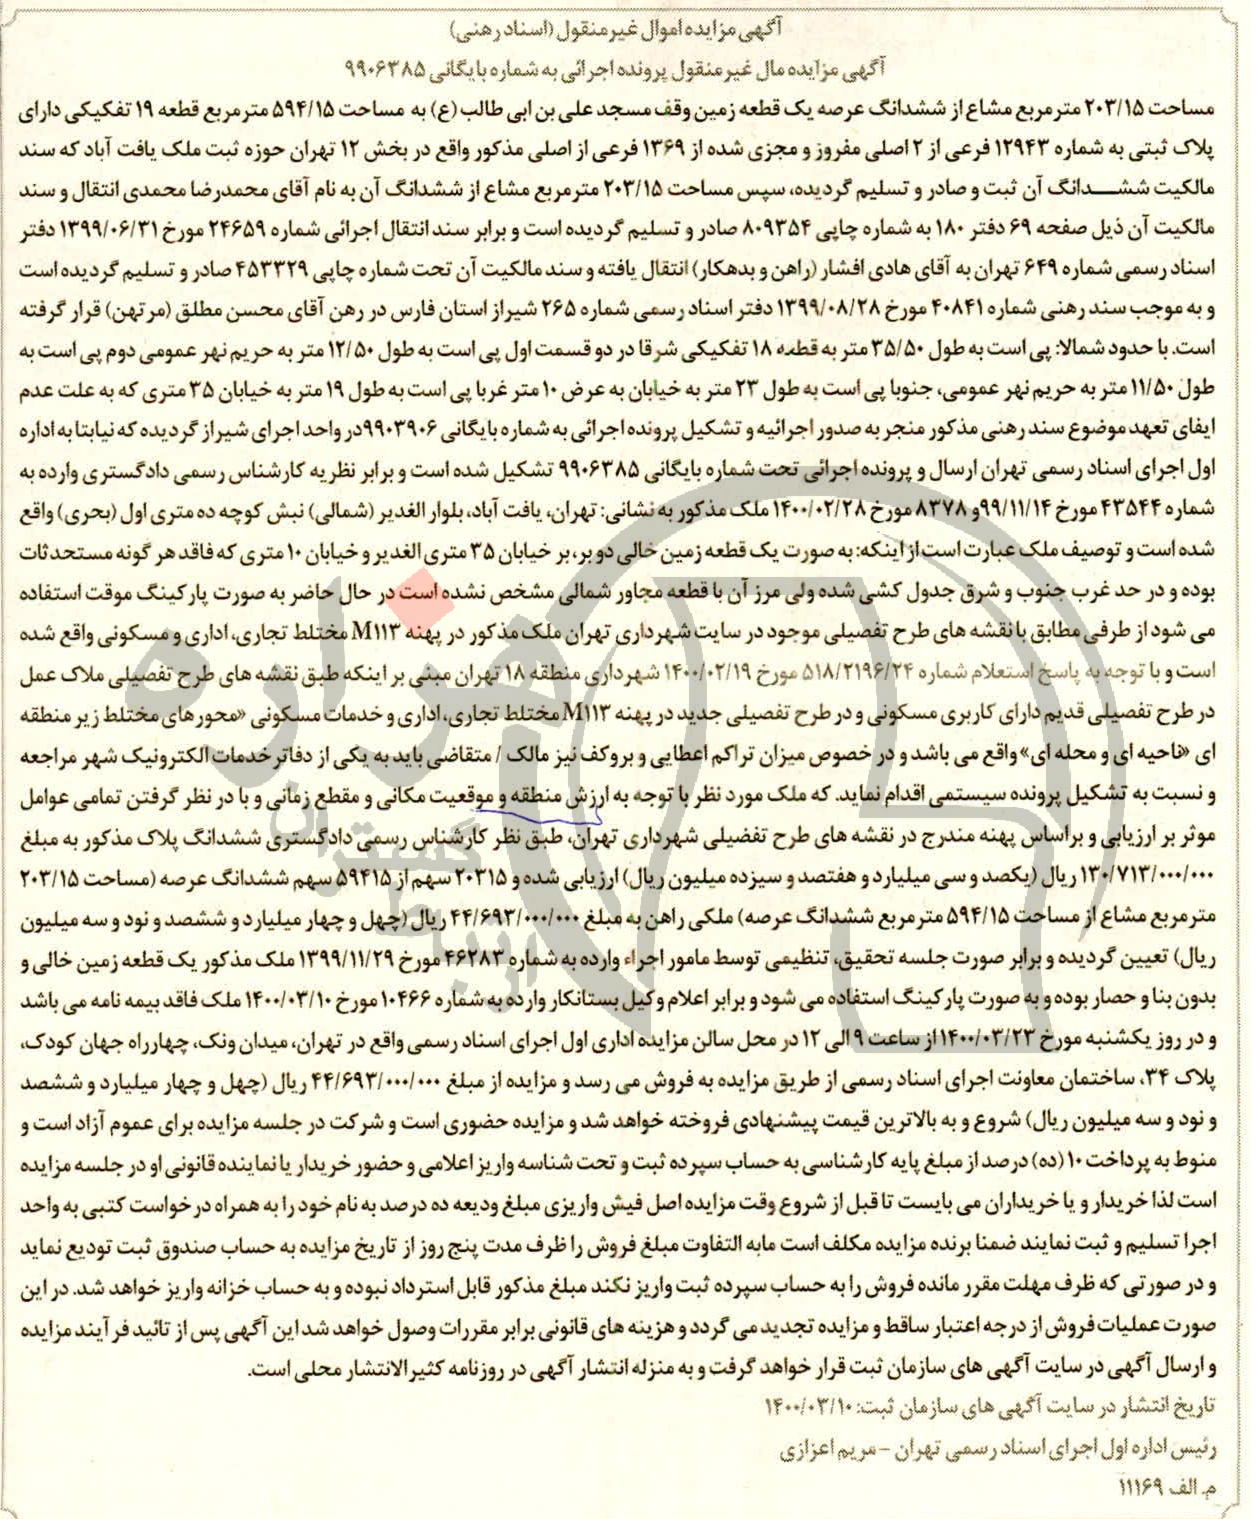 آگهی مزایده اموال غیر منقول (اسناد رهنی)
آگهی مزایده مال غیر منقول پرونده اجرائی به شماره بایگانی ۹۹۰۶۳۸۵
مساحت ۲۰۳/۱۵ مترمربع مشاع از ششدانگ عرصه یک قطعه زمین وقف مسجد علی بن ابی طالب (ع) به مساحت ۵۹۴/۱۵ مترمربع قطعه ۱۹ تفکیکی دارای
پلاک ثبتی به شماره ۱۲۹۴۳ فرعی از ۲ اصلی مفروز و مجزی شده از ۱۳۶۹ فرعی از اصلی مذکور واقع در بخش ۱۲ تهران حوزه ثبت ملک یافت آباد که سند
مالکیت ششدانگ آن ثبت و صادر و تسلیم گردیده، سپس مساحت ۲۰۳/۱۵ مترمربع مشاع از ششدانگ آن به نام آقای محمدرضا محمدی انتقال و سند
مالکیت آن ذیل صفحه ۶۹ دفتر ۱۸۰ به شماره چاپی ۸۰۹۳۵۴ صادر و تسلیم گردیده است و برابر سند انتقال اجرائی شماره ۲۴۶۵۹ مورخ ۱۳۹۹/۰۶/۳۱ دفتر
اسناد رسمی شماره ۶۴۹ تهران به آقای هادی افشار (راهن و بدهکار) انتقال یافته و سند مالکیت آن تحت شماره چاپی ۴۵۳۳۲۹ صادر و تسلیم گردیده است
و به موجب سند رهنی شماره ۴۰۸۴۱ مورخ ۱۳۹۹/۰۸/۲۸ دفتر اسناد رسمی شماره ۲۶۵ شیراز استان فارس در رهن آقای محسن مطلق (مرتهن) قرار گرفته
است. با حدود شمالا: پی است به طول ۳۵/۵۰ متر به قطعه ۱۸ تفکیکی شرقا در دو قسمت اول پی است به طول ۱۲/۵۰ متر به حریم نهر عمومی دوم پی است به
طول ۱۱/۵۰ متر به حریم نهر عمومی، جنوبا پی است به طول ۲۳ متر به خیابان به عرض ۱۰ متر غربا پی است به طول ۱۹ متر به خیابان ۳۵ متری که به علت عدم
ایفای تعهد موضوع سند رهنی مذکور منجر به صدور اجرائیه و تشکیل پرونده اجرائی به شماره بایگانی ۹۹۰۳۹۰۶ در واحد اجرای شیراز گردیده که نیابتا به اداره
اول اجرای اسناد رسمی تهران ارسال و پرونده اجرائی تحت شماره بایگانی ۹۹۰۶۳۸۵ تشکیل شده است و برابر نظریه کارشناس رسمی دادگستری وارده به
شماره ۴۳۵۴۴ مورخ ۹۹/۱۱/۱۴ و ۸۳۷۸ مورخ ۱۴۰۰/۰۲/۲۸ ملک مذکور به نشانی: تهران، یافت آباد، بلوار الغدیر (شمالی) نبش کوچه ده متری اول (بحری) واقع
شده است و توصیف ملک عبارت است از اینکه: به صورت یک قطعه زمین خالی دو بر، بر خیابان ۳۵ متری الغدیر و خیابان ۱۰ متری که فاقد هر گونه مستحدثات
بوده و در حد غرب جنوب و شرق جدول کشی شده ولی مرز آن با قطعه مجاور شمالی مشخص نشده است در حال حاضر به صورت پارکینگ موقت استفاده
می شود از طرفی مطابق با نقشه های طرح تفصیلی موجود در سایت شهرداری تهران ملک مذکور در پهنه M۱۱۳ مختلط تجاری، اداری و مسکونی واقع شده
است و با توجه به پاسخ استعلام شماره ۵۱۸/۲۱۹۶/۲۴ مورخ ۱۴۰۰/۰۲/۱۹ شهرداری منطقه ۱۸ تهران مبنی بر اینکه طبق نقشه های طرح تفصیلی ملاک عمل
در طرح تفصیلی قدیم دارای کاربری مسکونی و در طرح تفصیلی جدید در پهنه M۱۱۳ مختلط تجاری، اداری و خدمات مسکونی «محورهای مختلط زیر منطقه
ای «ناحیه ای و محله ای» واقع می باشد و در خصوص میزان تراکم اعطایی و بروکف نیز مالک / متقاضی باید به یکی از دفاتر خدمات الکترونیک شهر مراجعه
و نسبت به تشکیل پرونده سیستمی اقدام نماید. که ملک مورد نظر با توجه به ارزش منطقه و موقعیت مکانی و مقطع زمانی و با در نظر گرفتن تمامی عوامل
موثر بر ارزیابی و براساس پهنه مندرج در نقشه های طرح تفضیلی شهرداری تهران، طبق نظر کارشناس رسمی دادگستری ششدانگ پلاک مذکور به مبلغ
۱۳۰/۷۱۳/۰۰۰/۰۰۰ ریال (یکصد و سی میلیارد و هفتصد و سیزده میلیون ریال) ارزیابی شده و ۲۰۳۱۵ سهم از ۵۹۴۱۵ سهم ششدانگ عرصه (مساحت ۲۰۳/۱۵
مترمربع مشاع از مساحت ۵۹۴/۱۵ مترمربع ششدانگ عرصه) ملکی راهن به مبلغ ۴۴/۶۹۳/۰۰۰/۰۰۰ ریال (چهل و چهار میلیارد و ششصد و نود و سه میلیون
ریال) تعیین گردیده و برابر صورت جلسه تحقیق، تنظیمی توسط مامور اجراء وارده به شماره ۴۶۲۸۳ مورخ ۱۳۹۹/۱۱/۲۹ ملک مذکور یک قطعه زمین خالی و
بدون بنا و حصار بوده و به صورت پارکینگ استفاده می شود و برابر اعلام وکیل بستانکار وارده به شماره ۱۰۴۶۶ مورخ ۱۴۰۰/۰۳/۱۰ ملک فاقد بیمه نامه می باشد
و در روز یکشنبه مورخ ۱۴۰۰/۰۳/۲۳ از ساعت ۹ الی ۱۲ در محل سالن مزایده اداری اول اجرای اسناد رسمی واقع در تهران، میدان ونک، چهارراه جهان کودک،
پلاک ۳۴، ساختمان معاونت اجرای اسناد رسمی از طریق مزایده به فروش می رسد و مزایده از مبلغ ۴۴/۶۹۳/۰۰۰/۰۰۰ ریال (چهل و چهار میلیارد و ششصد
و نود و سه میلیون ریال) شروع و به بالاترین قیمت پیشنهادی فروخته خواهد شد و مزایده حضوری است و شرکت در جلسه مزایده برای عموم آزاد است و
منوط به پرداخت ۱۰ (ده) درصد از مبلغ پایه کارشناسی به حساب سپرده ثبت و تحت شناسه واریز اعلامی و حضور خریدار یا نماینده قانونی او در جلسه مزایده
است لذا خریدار و یا خریداران می بایست تا قبل از شروع وقت مزایده اصل فیش واریزی مبلغ ودیعه ده درصد به نام خود را به همراه درخواست کتبی به واحد
اجرا تسلیم و ثبت نمایند ضمنا برنده مزایده مکلف است مابه التفاوت مبلغ فروش را ظرف مدت پنج روز از تاریخ مزایده به حساب صندوق ثبت تودیع نماید
و در صورتی که ظرف مهلت مقرر مانده فروش را به حساب سپرده ثبت واریز نکند مبلغ مذکور قابل استرداد نبوده و به حساب خزانه واریز خواهد شد. در این
صورت عملیات فروش از درجه اعتبار ساقط و مزایده تجدید می گردد و هزینه های قانونی برابر مقررات وصول خواهد شد این آگهی پس از تائید فرآیند مزایده
و ارسال آگهی در سایت آگهی های سازمان ثبت قرار خواهد گرفت و به منزله انتشار آگهی در روزنامه کثیرالانتشار محلی است.
تاریخ انتشار در سایت آگهی های سازمان ثبت: ۱۴۰۰/۰۳/۱۰
رئیس اداره اول اجرای اسناد رسمی تهران - مریم اعزازی
م. الف ۱۱۱۶۹